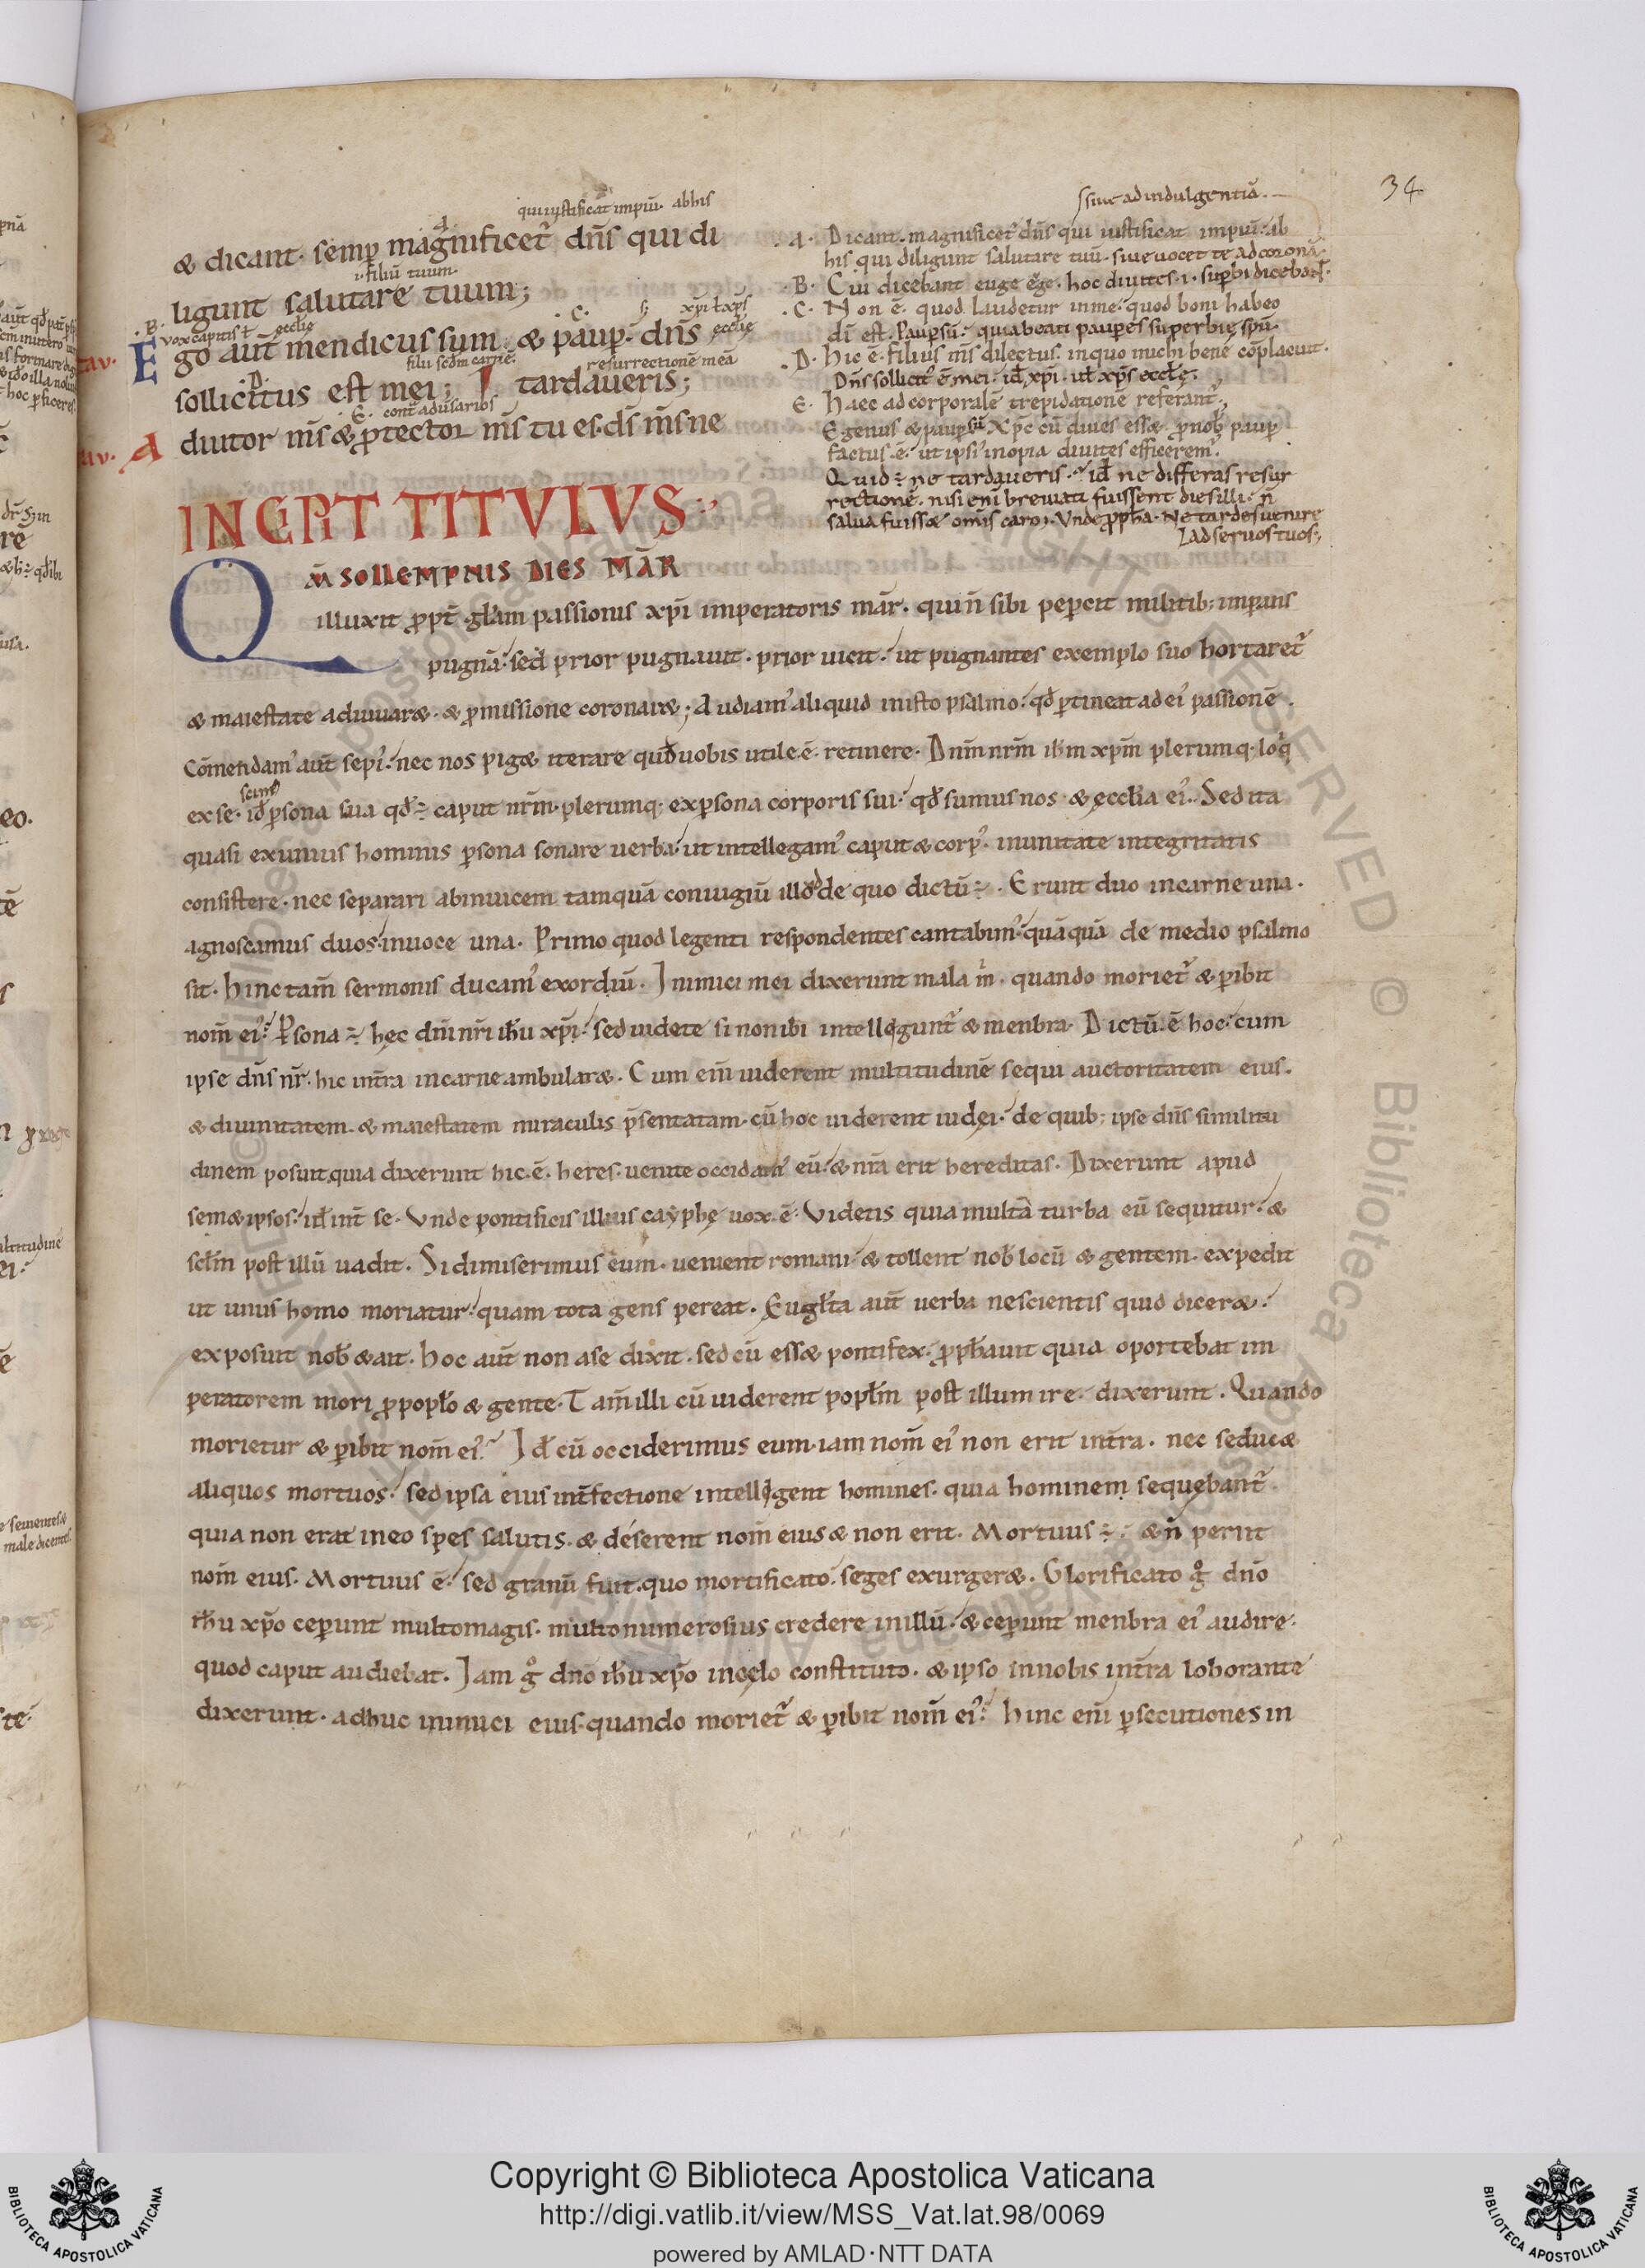 34
quiiustificat impiũ. abhis
A
& dicant. semp magnificet dñs qui di
.i. filiũ tuum.
ligunt salutare tuum;
.B. vox capitis ł ecclie .C. xp̃i ł xp̃s ecclie
Ego aut̃ mendicus sum. & paup. dñs
filii scdm carnẽ. resurrectionẽ meã
.D.
sollicitus est mei; tardaueris;
.E. cont̃ adũsarios
Adiutor m̃s & ptector m̃s tu es. ds m̃s ne
siue ad indulgentiã.
.A. Dicant. magnificet dñs qui iustificat impiũ. ab
his qui diligunt salutare tuũ. siue uocet te ad coronã.
.B. Cui dicebant euge ege. hoc diuites .i. supbi dicebant.
.C. Non ẽ. quod laudetur inme. quod boni habeo
di est. Paup sũ. quia beati paupes superbię spũ.
.D. hic ẽ. filius m̃s dilectus. inquo michi bene cõplacuit.
Dñs sollicit' ẽ mei. id xp̃i. ul xp̃s eccłę.
E. haec ad corporalẽ trepidationẽ referant̃,
Egenus & paup sũ xp̃c cũ diues ess&. pnob paup
factus. ẽ. ut ipsi' inopia diuites efficerem'.
Quid ÷ ne tardaueris. id ne differas resur
rectionẽ. nisi enĩ breuiati fuissent dies illi. ñ
salua fuiss& omis caro. Unde ppha. Ne tardes uenire
ad seruos tuos;
INCERT TITVLVS
QM̃ SOLLEMPNIS DIES MÃR
illuxit ppt glam passionis xp̃i imperatoris mãr. qui ñ sibi pepcit militib; imparis
pugnã. sed prior pugnauit. prior uicit. ut pugnantes exemplo suo hortaret
& maiestate adiuuar&. & pmissione coronar&; Audiam' aliquid inisto psalmo. qd ptineat ad ei' passionẽ.
Cõmendam' aut̃ sepi'. nec nos pig& iterare quod uobis utile. ẽ. retinere. Dñm nrm ihm xpm plerumq. loq
ex se. id psona sua qd ÷ caput nrm. plerumq. ex psona corporis sui. qd sumus nos & ęccłia ei'. Sed ita
quasi exunius hominis psona sonare uerba. ut intellegam' caput & corp'. inunitate integritatis
consistere. nec separari abinuicem tamquã coniugiũ illud de quo dictũ ÷. Erunt duo incarne una.
agnoscamus duos. inuoce una. Primo quod legenti respondentes cantabim'. quãquã de medio psalmo
sit. hinc tam̃ sermonis ducam' exordiũ. Inimici mei dixerunt mala m. quando moriet & pibit
nom̃ ei'. Psona ÷ hęc dñi nri ihu xpi. sed uidete si nonibi intellegunt & menbra. Dictũ. ẽ hoc. cum
ipse dñs nr. hic int̃ra incarne ambular&. Cum eñi uiderent multitudinẽ sequi auctoritatem eius.
& diuinitatem. & maiestatem miraculis psentatam. cũ hoc uiderent iudęi. de quib; ipse dñs similitu
dinem posuit. quia dixerunt hic. ẽ. heres. uenite occidam' eũ. & nra erit hereditas. Dixerunt apud
sem& ipsos. id int̃ se. Unde pontificis illius cayphę uox. ẽ. Videtis quia multã turba eũ sequitur. &
sclm post illũ uadit. Si dimiserimus eum. uenient romani & tollent nob locũ & gentem. expedit
ut unus homo moriatur. quam tota gens pereat. Euglta aut̃ uerba nescientis quid dicer&.
exposuit nob & ait. hoc aut̃ non ase dixit. sed cũ ess& pontifex. pphauit quia oportebat im
peratorem mori ppoplo & gente. Tam̃ illi cũ uiderent poplm post illum ire. dixerunt. Quando
morietur & pibit nom̃ ei'. Id cũ occiderimus eum. iam nom̃ ei' non erit int̃ra. nec seduc&
aliquos mortuos. sed ipsa eius int̃fectione intelligent homines. quia hominem sequebant
quia non erat ineo spes salutis. & déserent nom̃ eius & non erit. Mortuus ÷. & ñ periit
nom̃ eius. Mortuus ẽ. sed granũ fuit. quo mortificato. seges exurger&. Glorificato g dño
ihu xpo ceperunt multomagis. multonumerosius credere inillũ. & ceperunt menbra ei' audire.
quod caput audiebat. Iam g dño ihu xpo incęlo constituto. & ipso innobis int̃ra loborante
dixerunt. adhuc inimici eius. quando moriet & pibit nom̃ ei'. hinc eñi psecutiones in
Copyright © Biblioteca Apostolica Vaticana
http://digi.vatlib.it/view/MSS_Vat.lat.98/0069
powered by AMLAD·NTT DATA
BIBLIOTECA APOSTOLICA VATICANA
BIBLIOTECA APOSTOLICA VATICANA